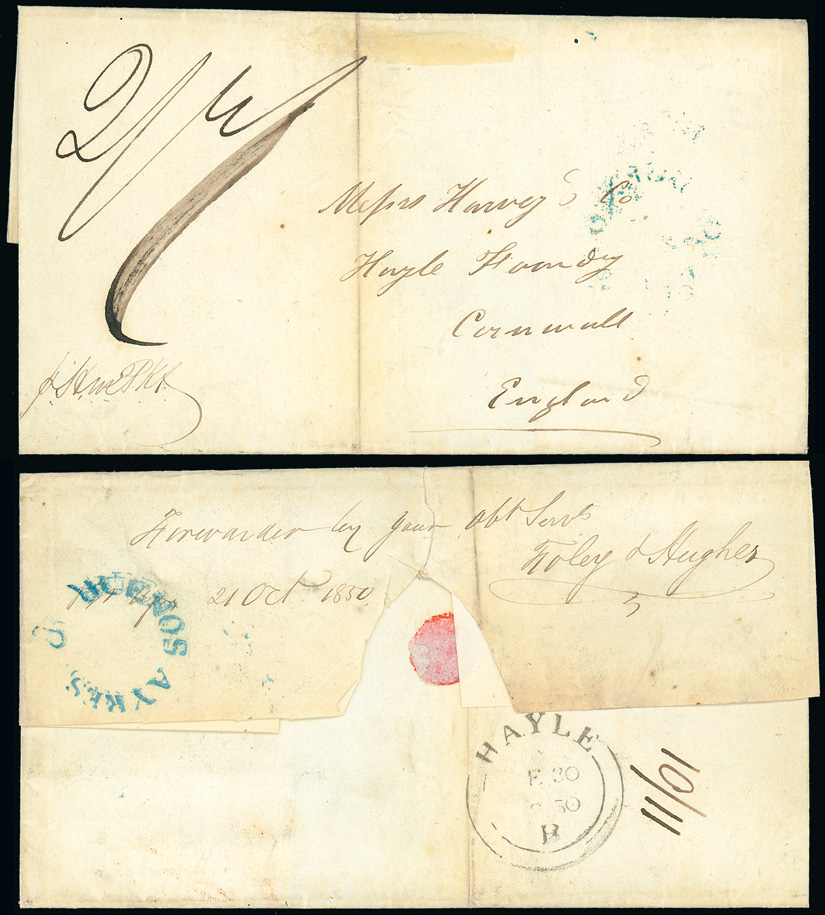 2/7
Messrs Harvey & Co
Hayle Foundry
Cornwall
England
Forwarded by your obt Servts
Foley & Hughes
21 Oct 1850
BUENOS AYRES
HAYLE
30
50
B
11/01